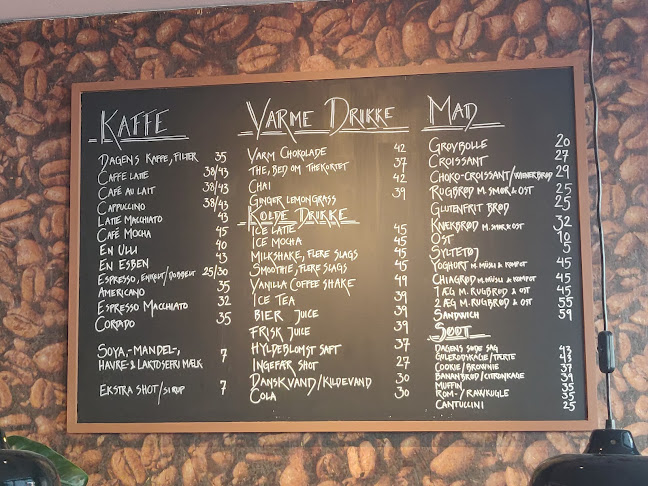 KAFFE
DAGENS KAFFE, FILTER 35
CAFFE LATTE 38/43
CAFÉ AU LAIT 38/43
CAPPUCCINO 38/43
LATTE MACCHIATO 43
CAFÉ MOCHA 45
EN ULLI 40
EN ESBEN 43
ESPRESSO, ENKELT/DOBBELT 25/30
AMERICANO 35
ESPRESSO MACCHIATO 32
CORTADO 35
SOYA-, MANDEL-,
HAVRE- & LAKTOSEFRI MÆLK 7
EKSTRA SHOT/SIRUP 7
VARME DRIKKE
VARM CHOKOLADE 42
THE, BED OM THEKORTET 37
CHAI 42
GINGER LEMONGRASS 39
KOLDE DRIKKE
ICE LATTE 45
ICE MOCHA 45
MILKSHAKE, FLERE SLAGS 45
SMOOTHIE, FLERE SLAGS 45
VANILLA COFFEE SHAKE 49
ICE TEA 39
BIER JUICE 39
FRISK JUICE 39
HYLDEBLOMST SAFT 37
INGEFÆR SHOT 27
DANSKVAND/KILDEVAND 30
COLA 30
MAD
GROVBOLLE 20
CROISSANT 27
CHOKO-CROISSANT/WIENERBRØD 29
RUGBRØD M. SMØR & OST 25
GLUTENFRIT BRØD 25
KNEKBRØD M. SMØR & OST 32
OST 10
SYLTETØJ 5
YOGHURT M. MÜSLI & KOMPOT 45
CHIAGRØD M. MÜSLI & KOMPOT 45
1 ÆG M. RUGBRØD & OST 45
2 ÆG M. RUGBRØD & OST 55
SANDWICH 59
SØDT
DAGENS SØDE SAG 43
GULERODSKAGE/TÆRTE 43
COOKIE/BROWNIE 37
BANANBRØD/CITRONKAGE 39
MUFFIN 35
ROM-/RAWKUGLE 35
CANTUCCINI 25